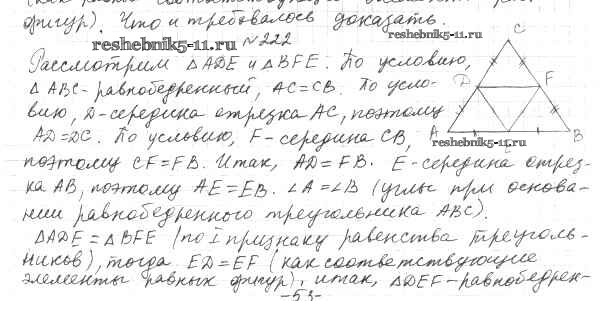 (как равные соответствующие элементы рав.
фигур). Что и требовалось доказать.
reshebnik5-11.ru
№222
reshebnik5-11.ru
Рассмотрим ΔADE и ΔBFE. По условию,
ΔABC-равнобедренный, AC=CB. По усло-
вию, D-середина отрезка AC, поэтому
AD=DC. По условию, F-середина CB,
поэтому CF=FB. Итак, AD=FB. E-середина отрез-
ка AB, поэтому AE=EB. ∠A=∠B (углы при основа-
нии равнобедренного треугольника ABC).
ΔADE=ΔBFE (по I признаку равенства треуголь-
ников), тогда ED=EF (как соответствующие
элементы равных фигур), итак, ΔDEF-равнобедрен-
-53-
C
D
F
A
E
B
reshebnik5-11.ru